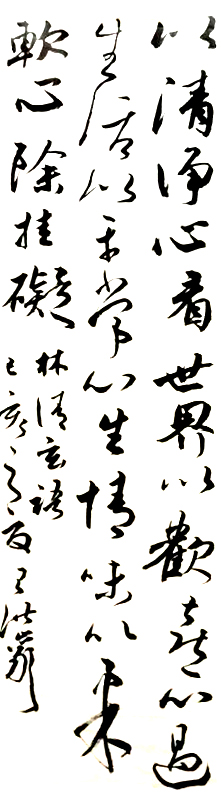 以清净心看世界以歡喜心過
生活以平常心生情味以柔
軟心除挂礙
林清玄語
己亥之夏